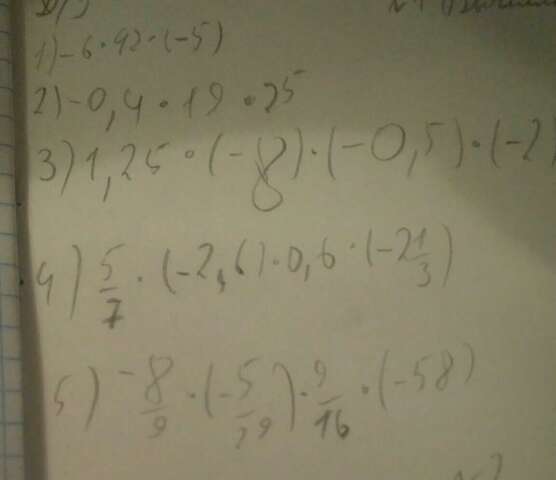 1) -6 · 92 · (-5)
2) -0,4 · 19 · 25
3) 1,25 · (-8) · (-0,5) · (-2)
4) 5/7 · (-2,6) · 0,6 · (-2 1/3)
5) -8/9 · (-5/29) · 9/16 · (-58)